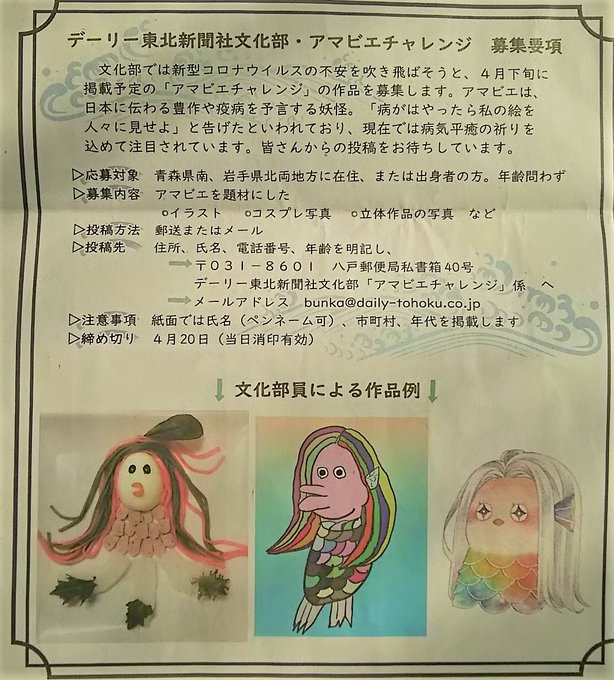 デーリー東北新聞社文化部・アマビエチャレンジ　募集要項
文化部では新型コロナウイルスの不安を吹き飛ばそうと、４月下旬に
掲載予定の「アマビエチャレンジ」の作品を募集します。アマビエは、
日本に伝わる豊作や疫病を予言する妖怪。「病がはやったら私の絵を
人々に見せよ」と告げたといわれており、現在では病気平癒の祈りを
込めて注目されています。皆さんからの投稿をお待ちしています。
▷応募対象　青森県南、岩手県北両地方に在住、または出身者の方。年齢問わず
▷募集内容　アマビエを題材にした
○イラスト　○コスプレ写真　○立体作品の写真　など
▷投稿方法　郵送またはメール
▷投稿先　住所、氏名、電話番号、年齢を明記し、
→〒０３１－８６０１　八戸郵便局私書箱40号
デーリー東北新聞社文化部「アマビエチャレンジ」係　へ
→メールアドレス　bunka@daily-tohoku.co.jp
▷注意事項　紙面では氏名（ペンネーム可）、市町村、年代を掲載します
▷締め切り　４月20日（当日消印有効）
↓文化部員による作品例↓